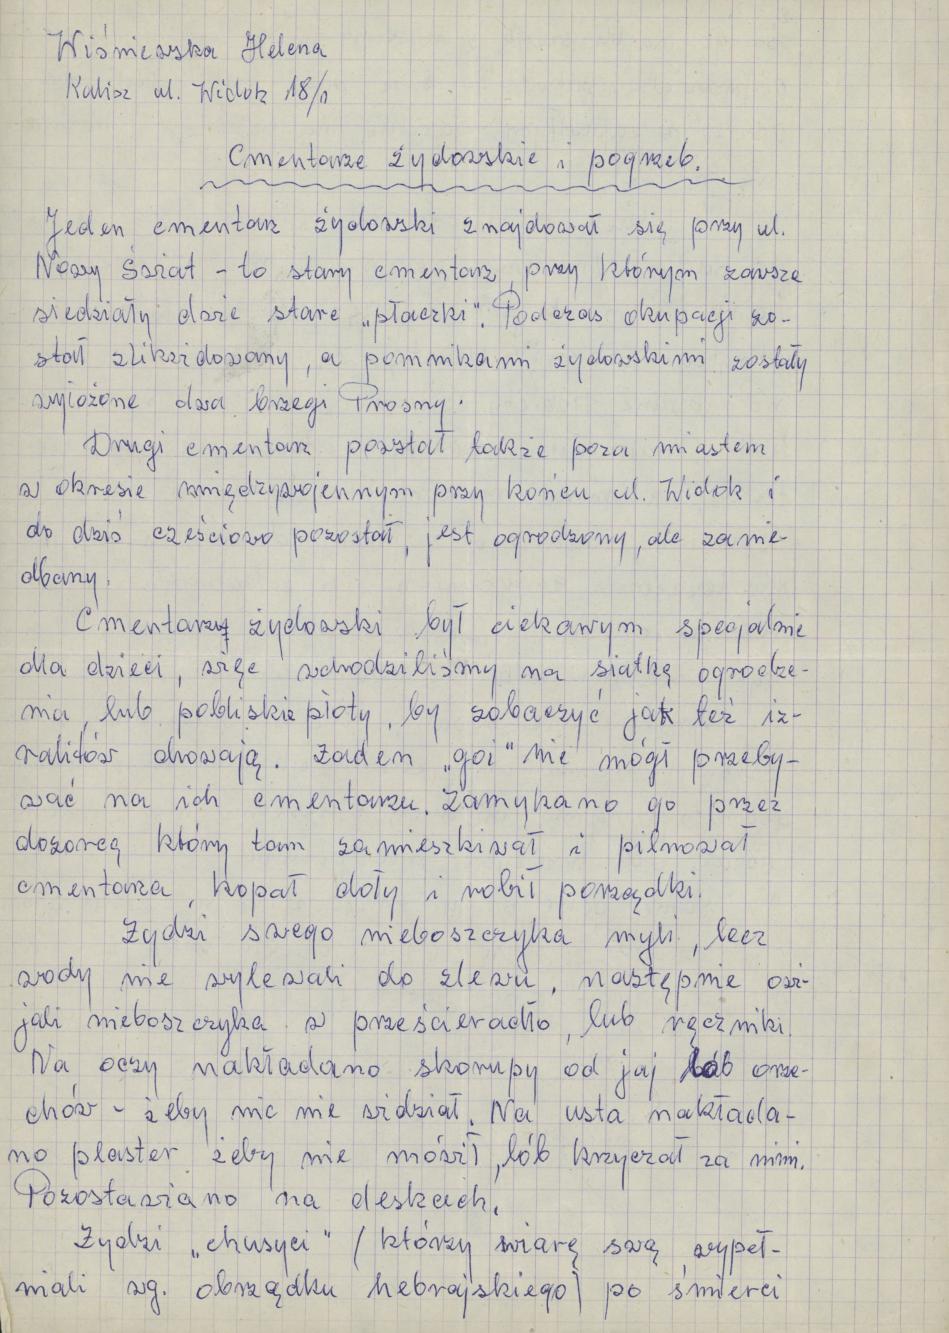 Wiśniewska Helena
Kalisz ul. Widok 18/1
Cmentarze żydowskie i pogrzeb.
Jeden cmentarz żydowski znajdował się przy ul.
Nowy Świat - to stary cmentarz, przy którym zawsze
siedziały dwie stare „płaczki". Podczas okupacji zo-
stał zlikwidowany, a pomnikami żydowskimi zostały
wyłożone dwa brzegi Prosny.
Drugi cmentarz powstał także poza miastem
w okresie międzywojennym przy końcu ul. Widok i
do dziś częściowo pozostał, jest ogrodzony, ale zanie-
dbany.
Cmentarz żydowski był ciekawym specjalnie
dla dzieci, więc wchodziliśmy na siatkę ogrodze-
nia, lub pobliskie płoty, by zobaczyć jak też iz-
raelitów chowają. Żaden „goi" nie mógł przeby-
wać na ich cmentarzu. Zamykano go przez
dozorcę który tam zamieszkiwał i pilnował
cmentarza, kopał doły i robił porządki.
Żydzi swego nieboszczyka myli, lecz
wody nie wylewali do zlewu, następnie owi-
jali nieboszczyka w prześcieradło, lub ręczniki.
Na oczy nakładano skorupy od jaj lub orze-
chów - żeby nic nie widział. Na usta nakłada-
no plaster żeby nie mówił, lób krzyczał za nimi.
Pozostawiano na deskach.
Żydzi „chusyci" (którzy wiarę swą wypeł-
niali wg. obrządku hebrajskiego) po śmierci